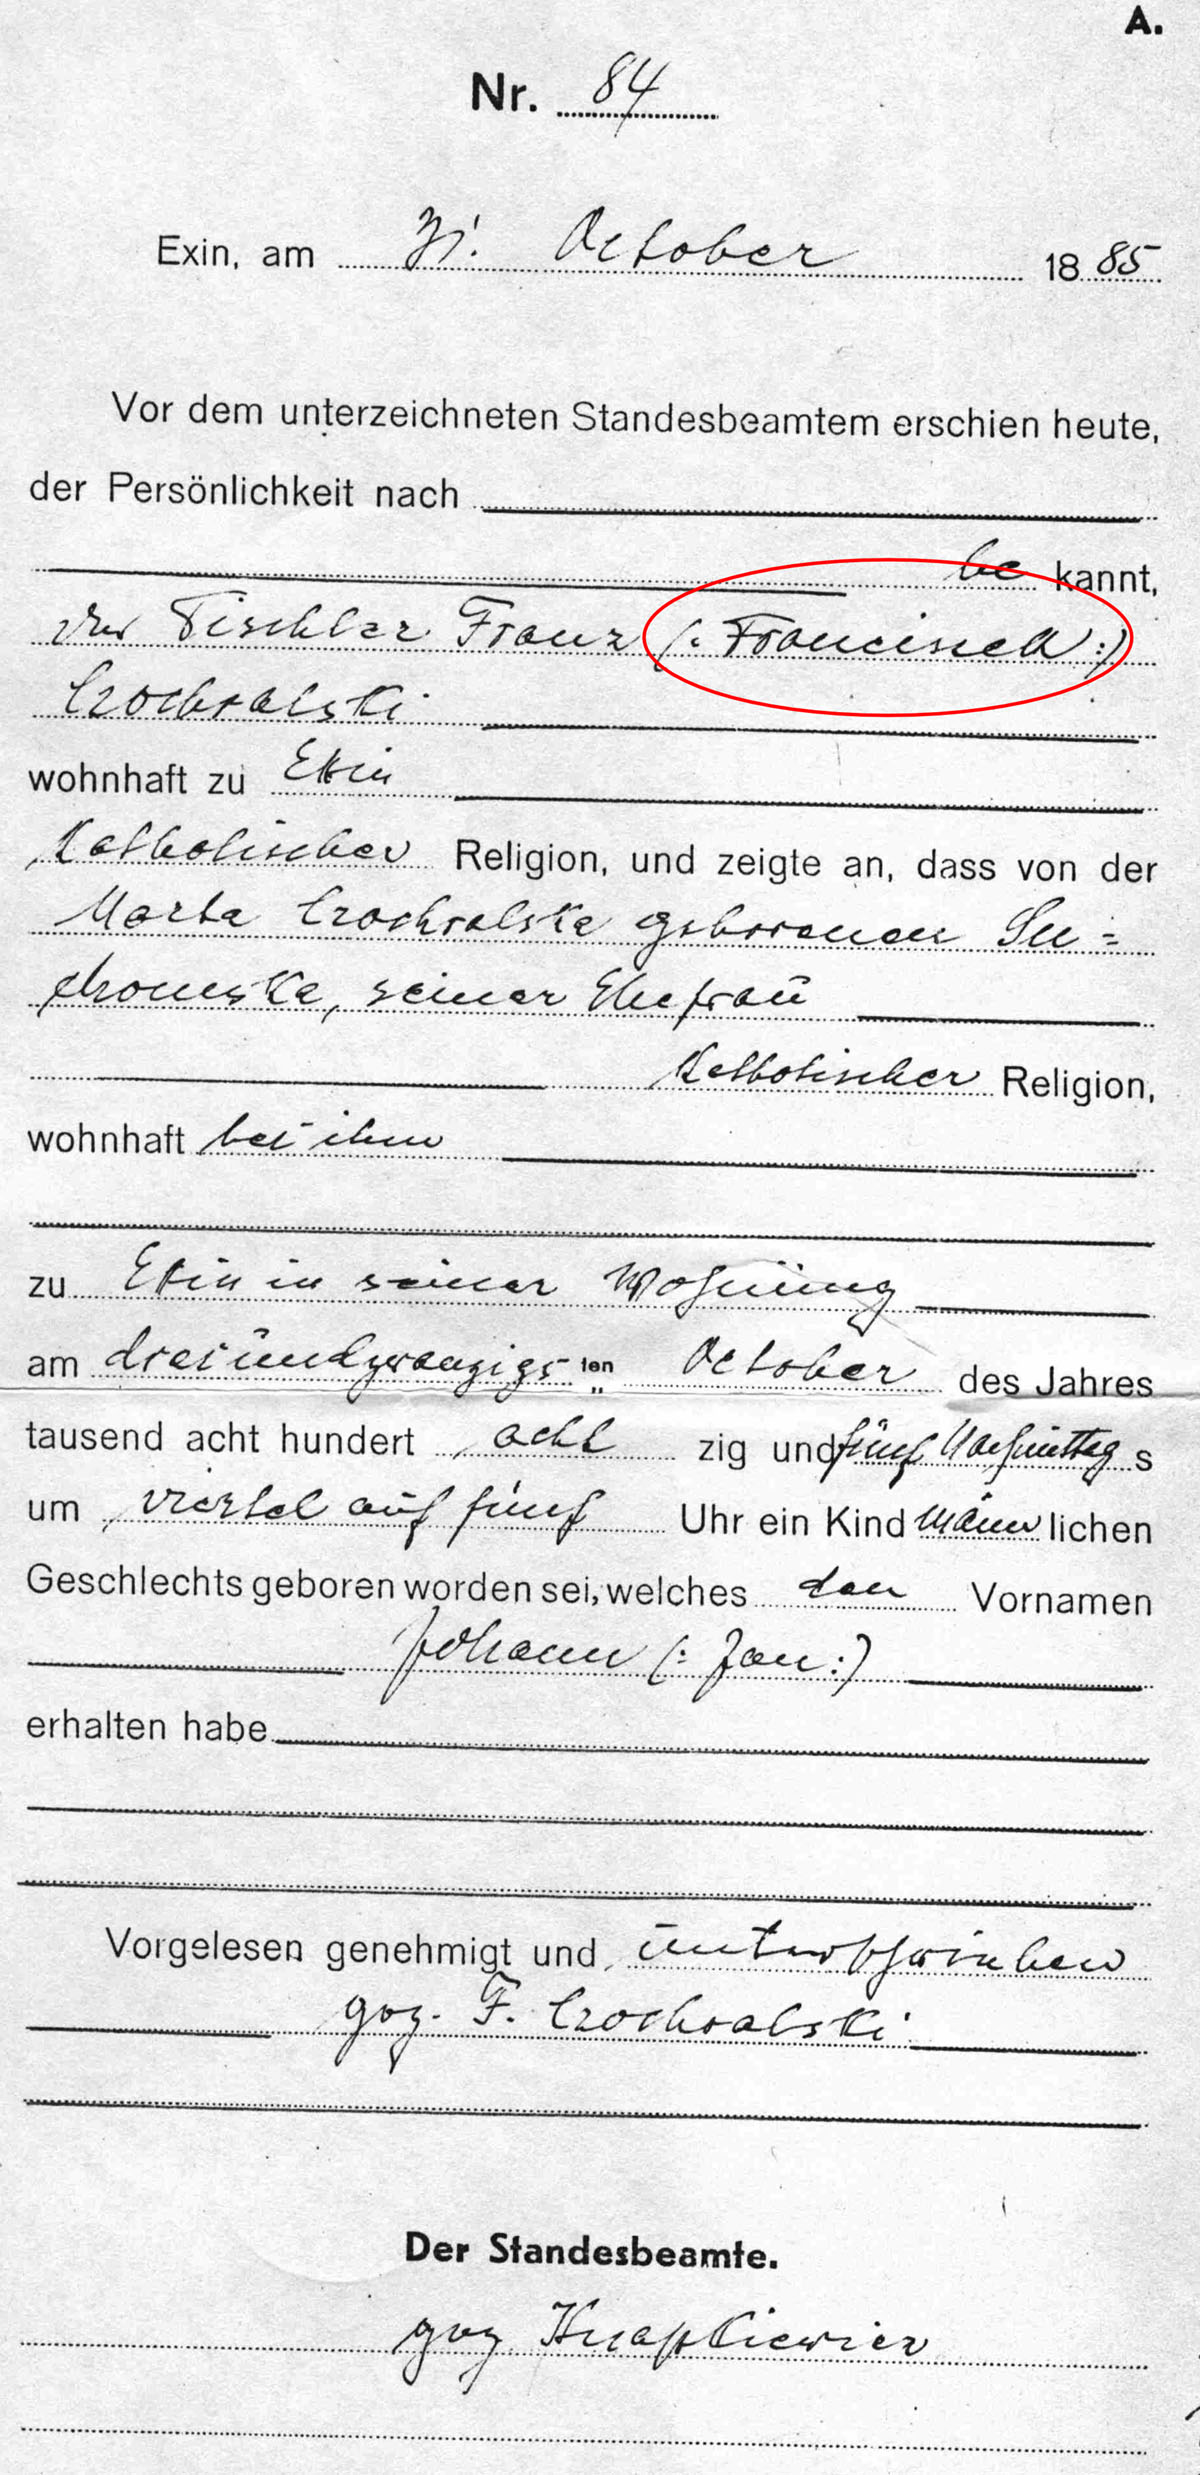 A.
Nr. 84
Exin, am 31. October 1885
Vor dem unterzeichneten Standesbeamtem erschien heute,
der Persönlichkeit nach
be kannt,
der Tischler Franz (: Franciszek :)
Czochralski
wohnhaft zu Exin
katholischer Religion, und zeigte an, dass von der
Marta Czochralska geborenen Su=
chomska, seiner Ehefrau
katholischer Religion,
wohnhaft bei ihm
zu Exin in seiner Wohnung
am dreiundzwanzigs ten October des Jahres
tausend acht hundert acht zig und fünf Nachmittag s
um viertel auf fünf Uhr ein Kind männ lichen
Geschlechts geboren worden sei, welches den Vornamen
Johann (: Jan :)
erhalten habe
Vorgelesen genehmigt und unterschrieben
gez. F. Czochralski
Der Standesbeamte.
gez. Knapkiewicz